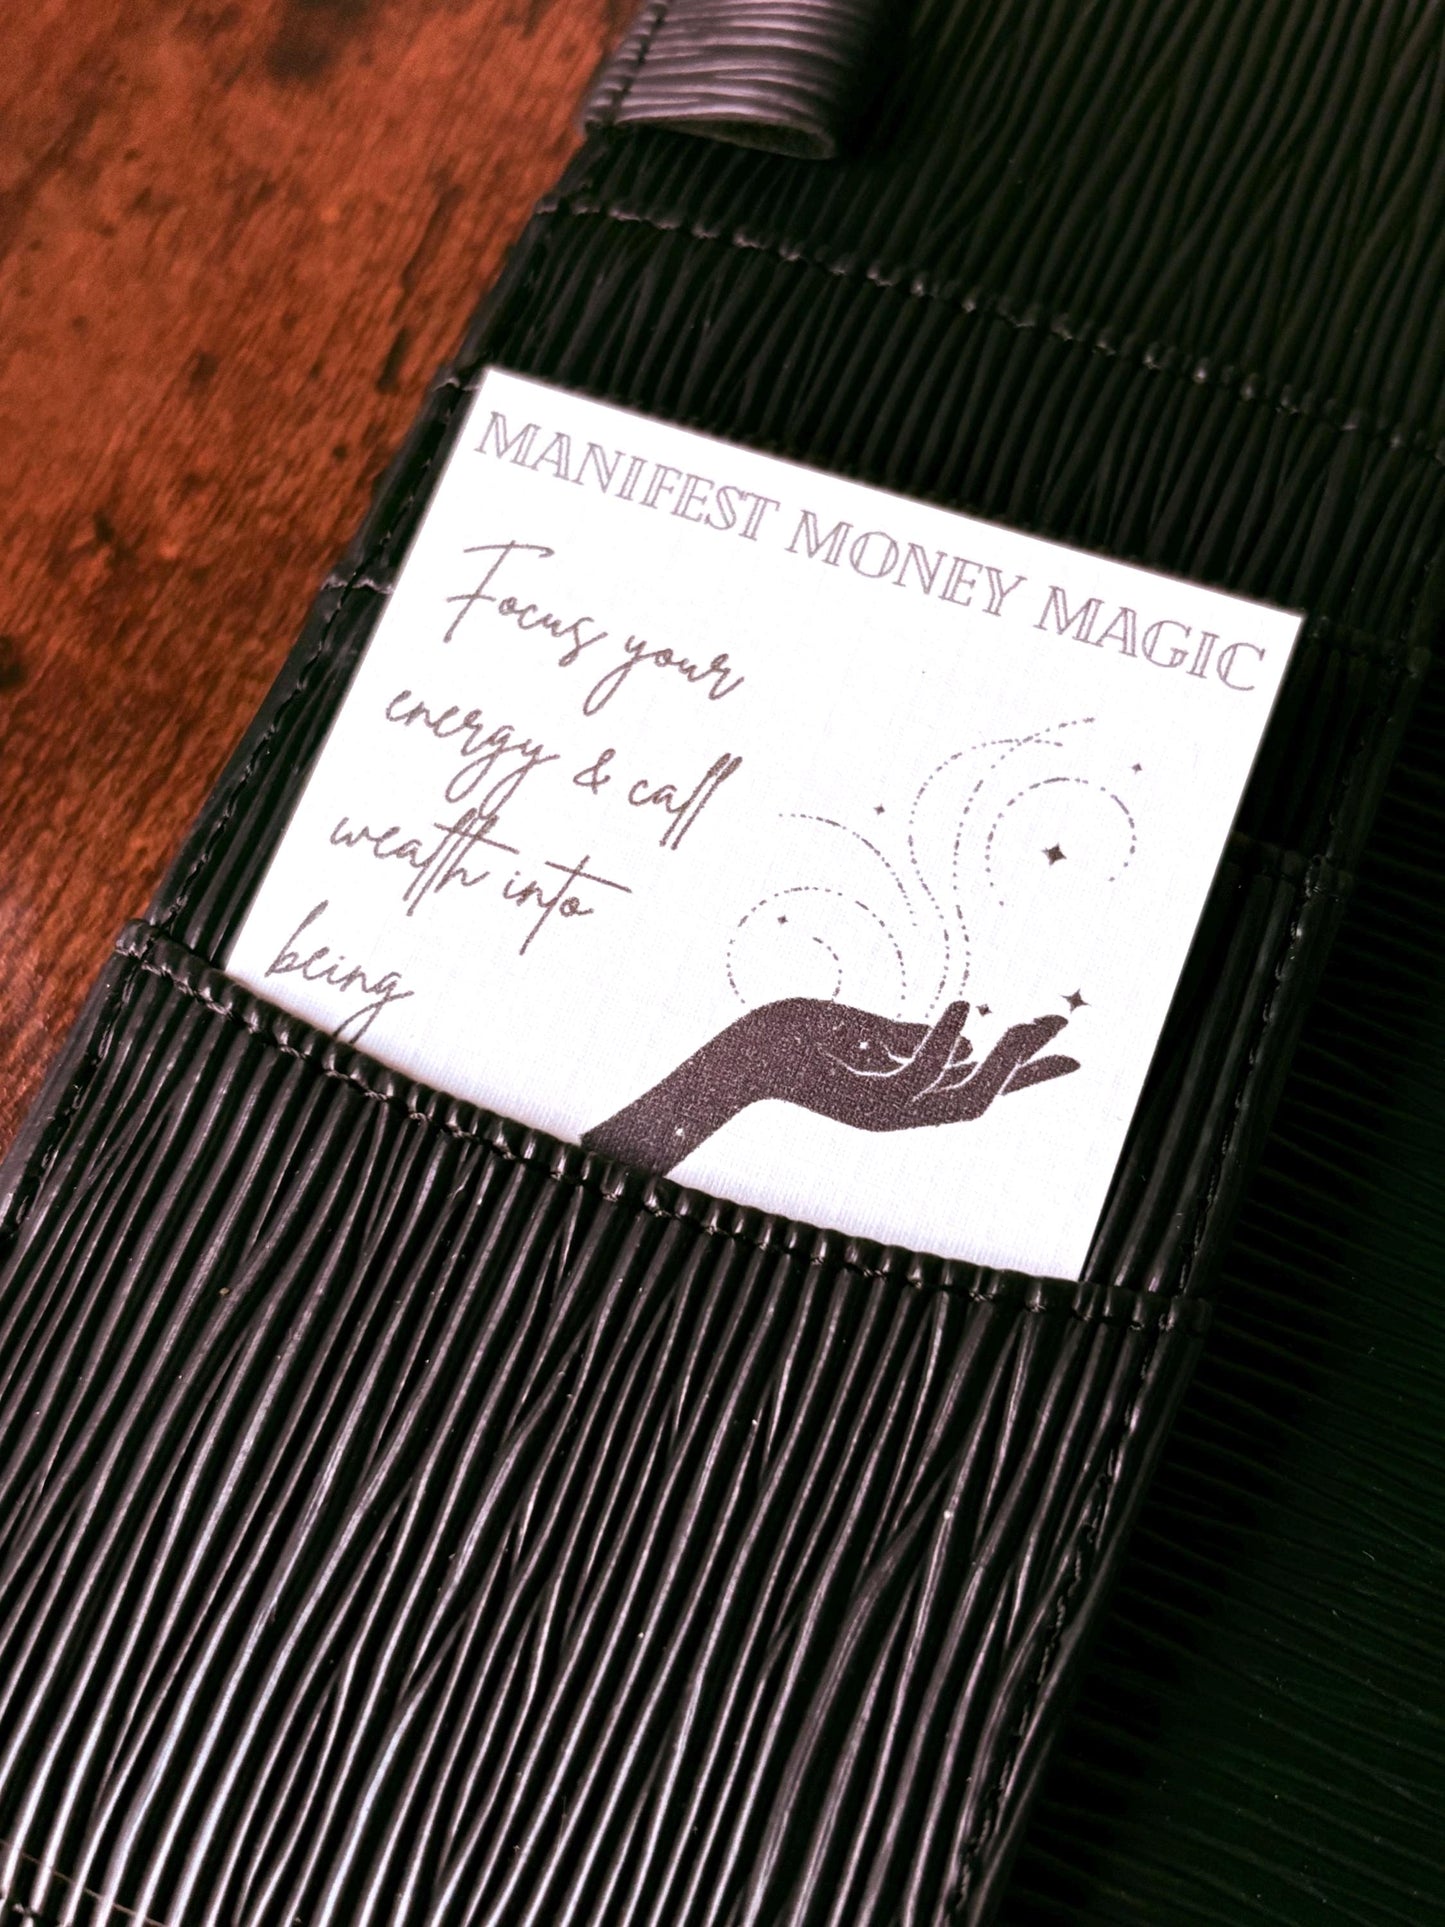 MANIFEST MONEY MAGIC
Focus your
energy & call
wealth into
being